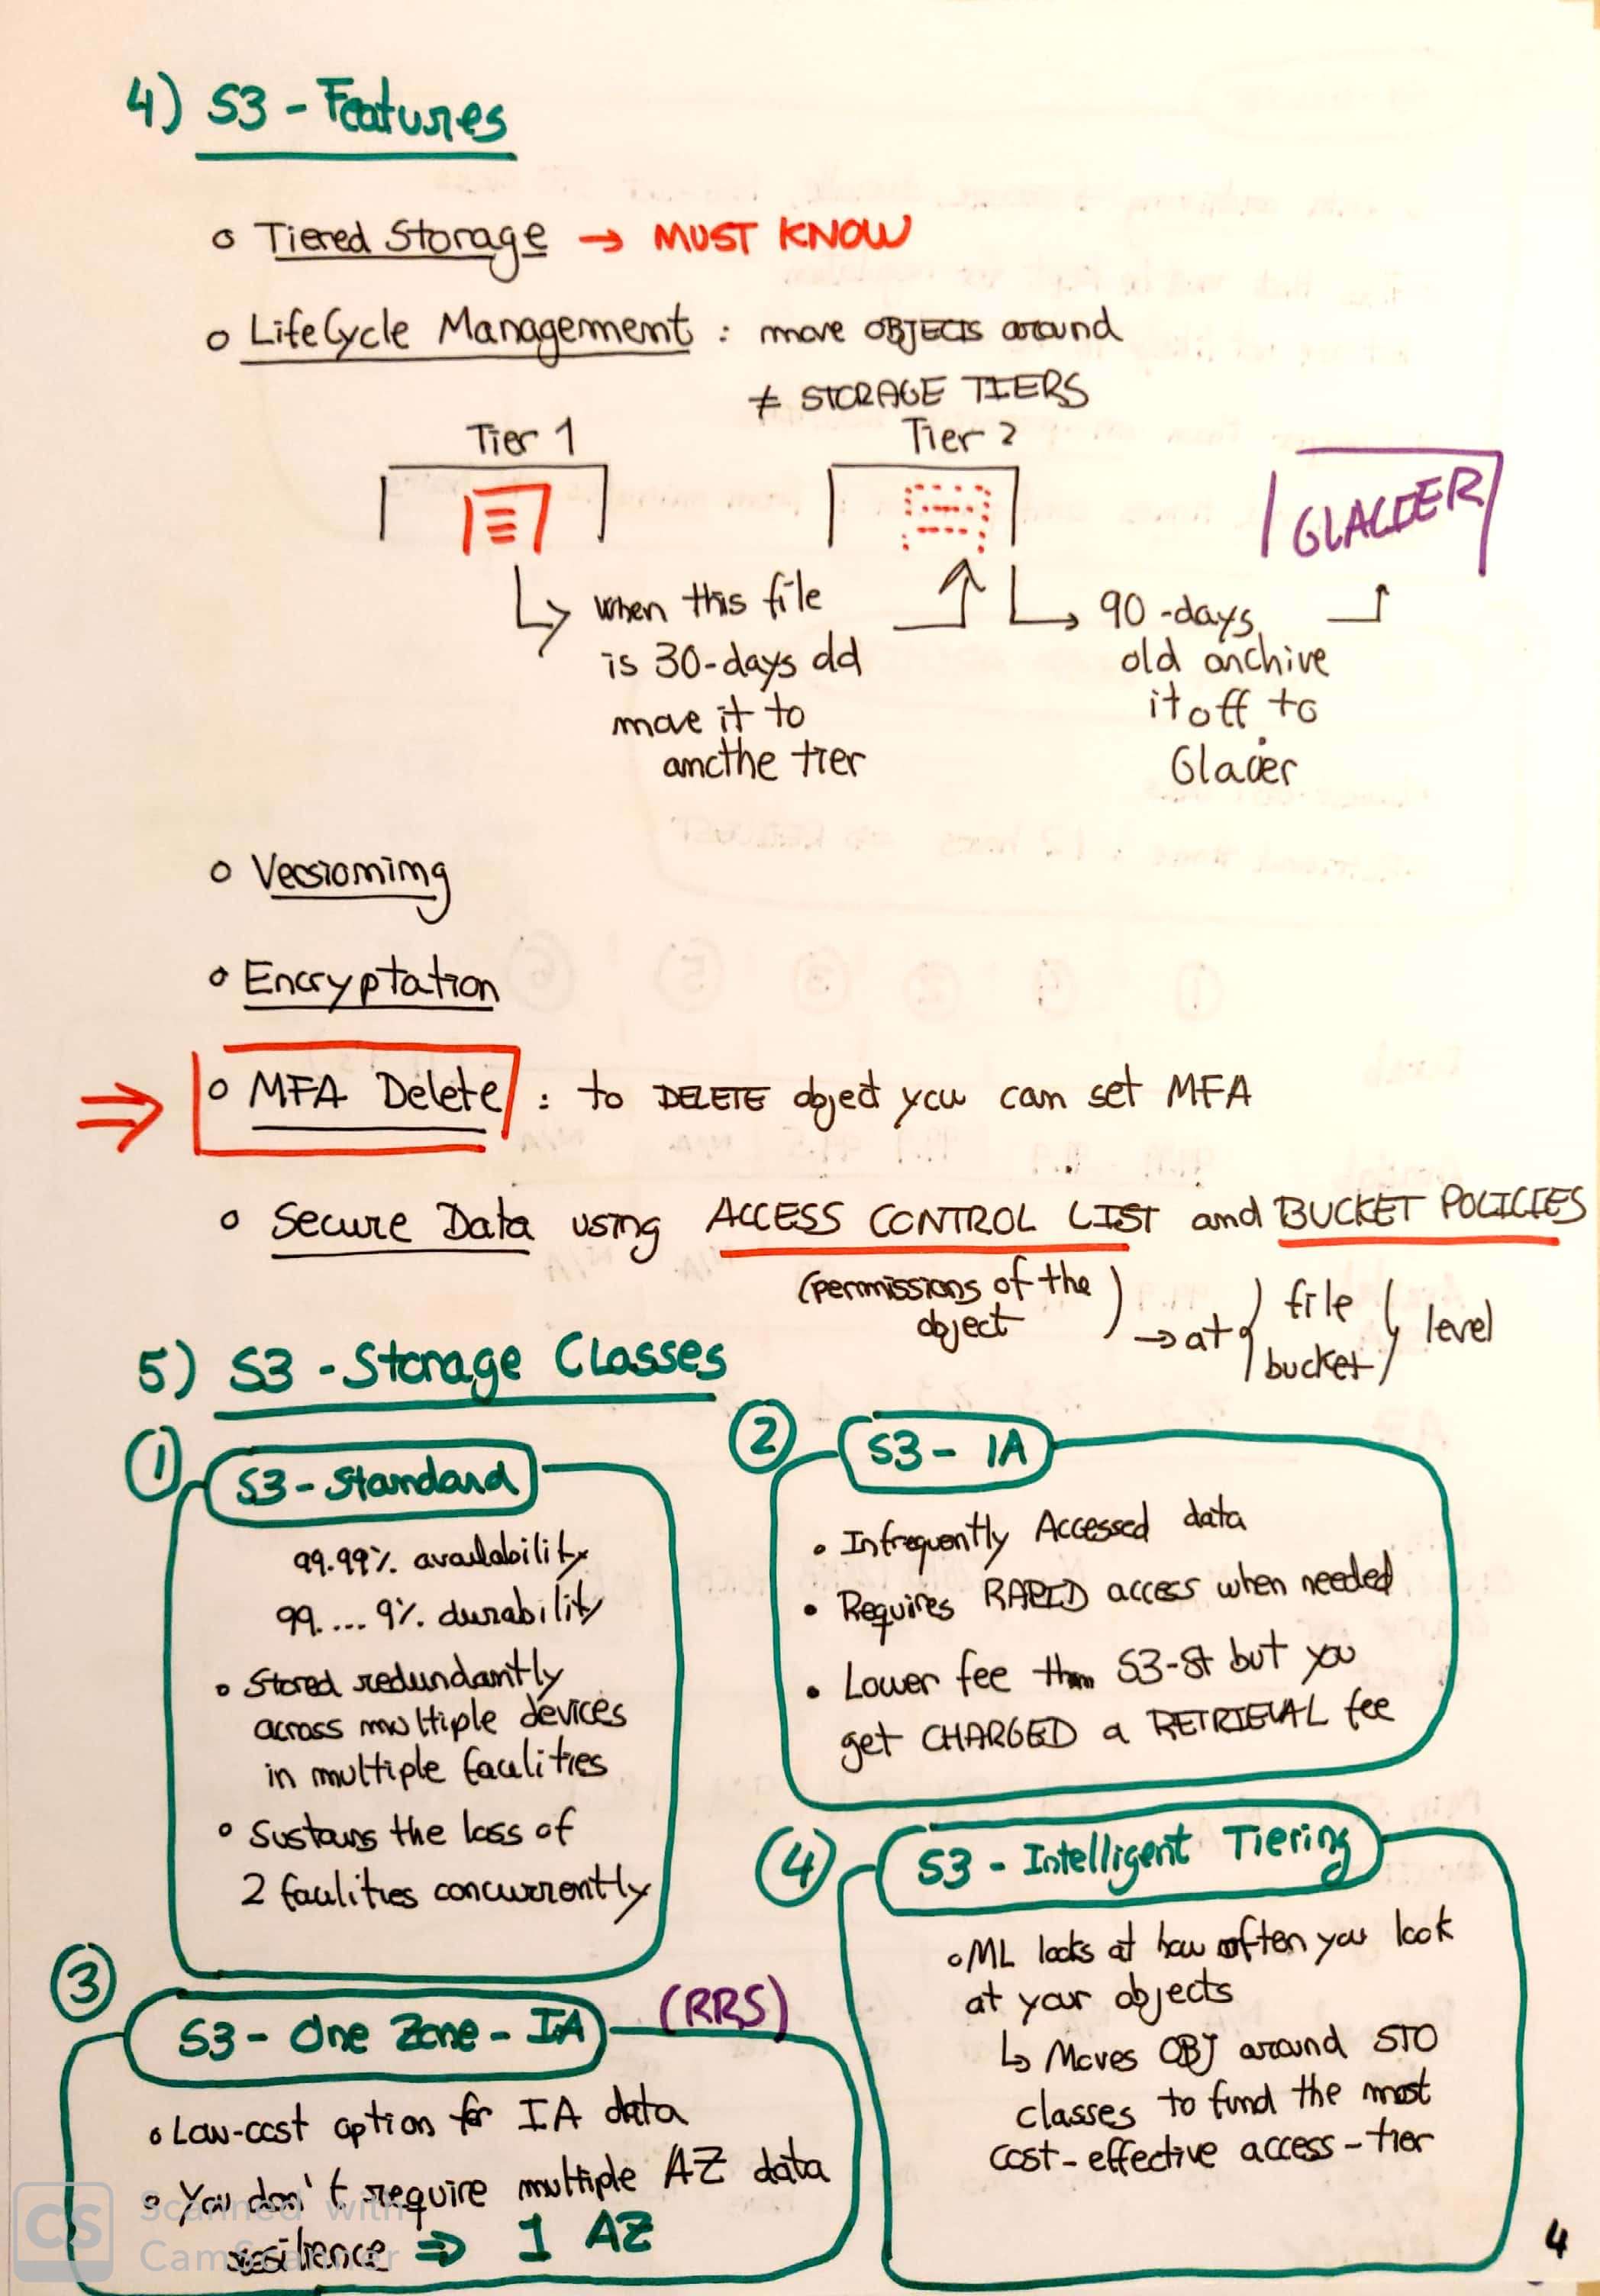 4) S3 - Features
o Tiered Storage → MUST KNOW
o LifeCycle Management : move OBJECTS around
≠ STORAGE TIERS
Tier 1
Tier 2
GLACIER
when this file
is 30-days old
move it to
anothe tier
90-days
old archive
it off to
Glacier
o Versioning
o Encryptation
⇒ o MFA Delete : to DELETE object you can set MFA
o Secure Data using ACCESS CONTROL LIST and BUCKET POLICIES
(permissions of the
object) → at { file
bucket } level
5) S3 - Storage Classes
1 S3 - Standard
99.99% availability
99....9% durability
• Stored redundantly
across multiple devices
in multiple facilities
• Sustains the loss of
2 facilities concurrently
2 S3 - IA
• Infrequently Accessed data
• Requires RAPID access when needed
• Lower fee than S3-St but you
get CHARGED a RETRIEVAL fee
3 S3 - One Zone - IA (RRS)
• Low-cost option for IA data
• You don't require multiple AZ data
resilience ⇒ 1 AZ
4 S3 - Intelligent Tiering
• ML looks at how often you look
at your objects
↳ Moves OBJ around STO
classes to fund the most
cost-effective access-tier
CS Scanned with
CamScanner
4